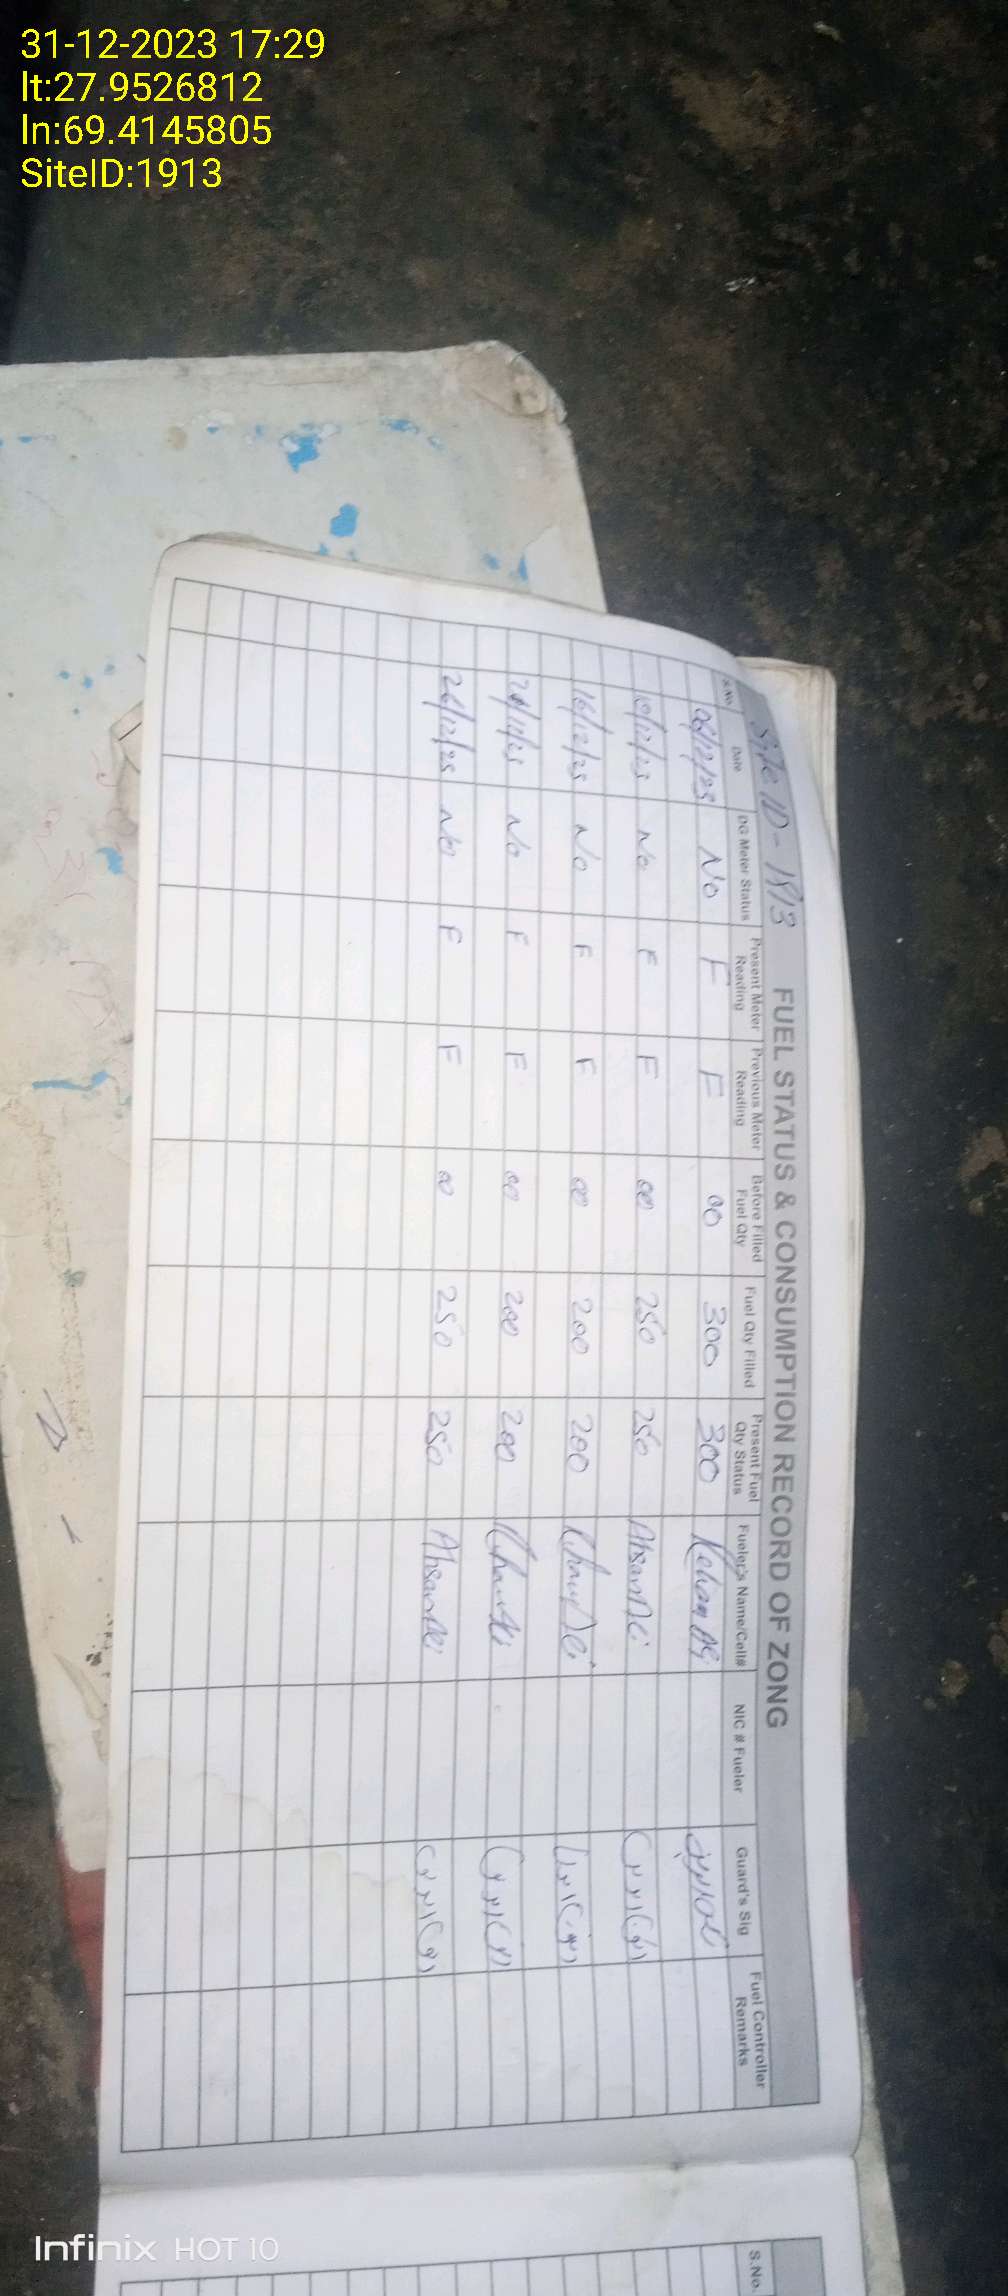 31-12-2023 17:29
lt:27.9526812
ln:69.4145805
SiteID:1913
Site ID - 1913 FUEL STATUS & CONSUMPTION RECORD OF ZONG
S.No. Date DG Meter Status Present Meter Reading Previous Meter Reading Before Filled Fuel Qty Fuel Qty Filled Present Fuel Qty Status Fueler's Name/Cell# NIC # Fueler Guard's Sig Fuel Controller Remarks
06/12/23 No F F 00 300 300
10/12/23 No F F 00 250 250 Ahsan Ali
16/12/23 No F F 00 200 200
No F F 00 200 200
26/12/23 No F F 00 250 250 Ahsan Ali
S.No.
Infinix HOT 10